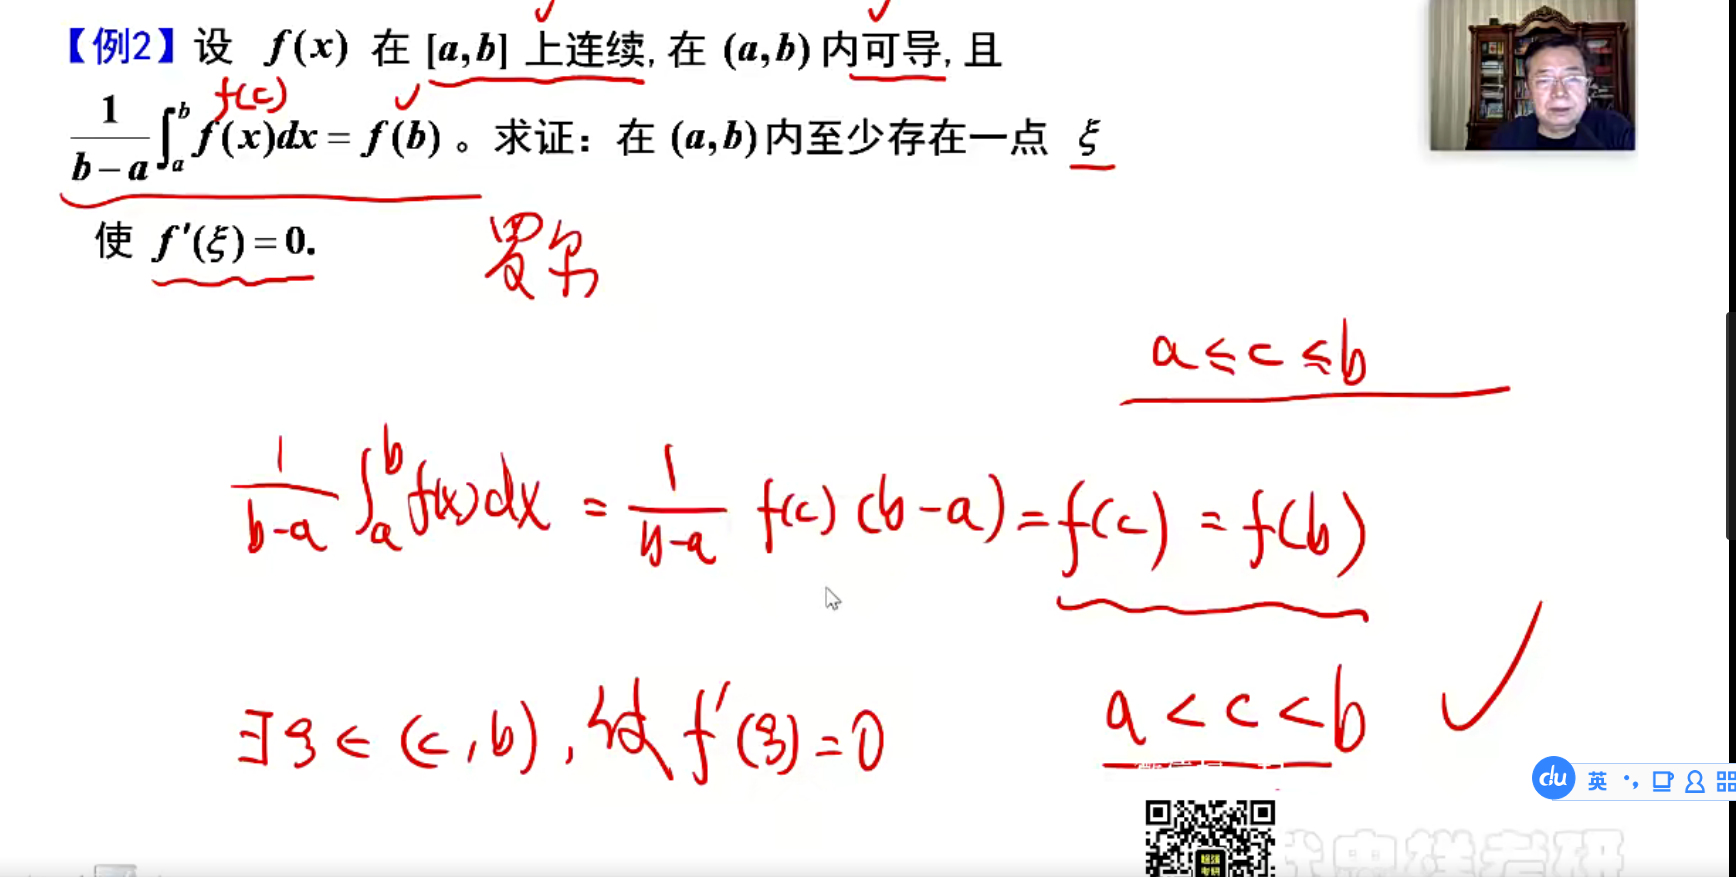 【例2】设 f(x) 在 [a,b] 上连续, 在 (a,b) 内可导, 且
f(c)
1/(b−a) ∫_a^b f(x)dx = f(b) 。求证：在 (a,b) 内至少存在一点 ξ
使 f′(ξ) = 0.
罗尔
a ≤ c ≤ b
1/(b−a) ∫_a^b f(x)dx = 1/(b−a) f(c)(b−a) = f(c) = f(b)
∃ξ∈(c,b), 使 f′(ξ)=0
a < c < b
du 英
忠祥考研